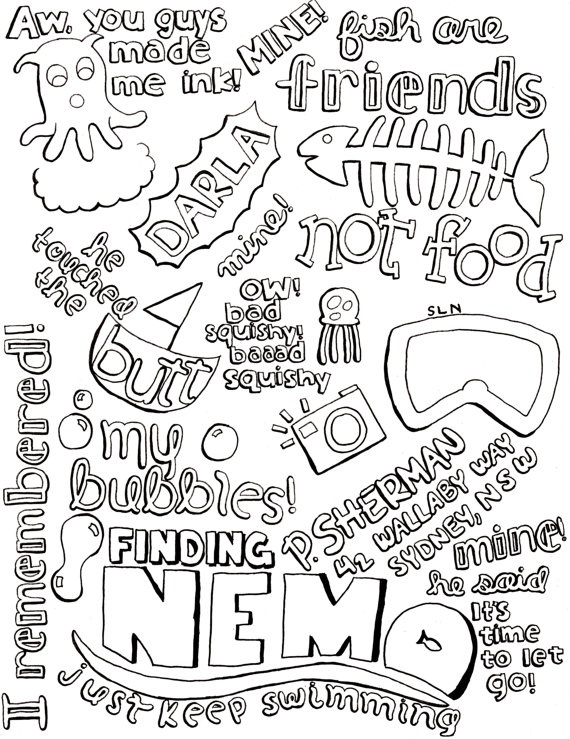 Aw, you guys
made
me ink!
MINE!
fish are
friends
not food
DARLA
mine!
he
touched
the
butt
OW!
bad
squishy!
baaad
squishy
SLN
I remembered!
my
bubbles!
P. SHERMAN
42 WALLABY WAY
SYDNEY, NSW
mine!
he said
It's
time
to let
go!
FINDING
NEMO
just keep swimming